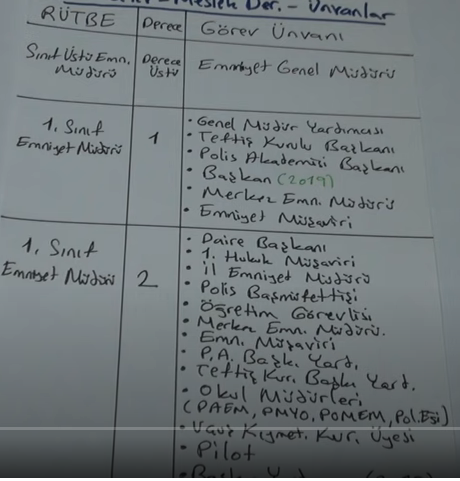 Meslek Der. - Ünvanlar
RÜTBE Derece Görev Ünvanı
Sınıf Üstü Emn. Müdürü Derece Üstü Emniyet Genel Müdürü
1. Sınıf Emniyet Müdürü 1
• Genel Müdür Yardımcısı
• Teftiş Kurulu Başkanı
• Polis Akademisi Başkanı
• Başkan (2019)
• Merkez Emn. Müdürü
• Emniyet Müşaviri
1. Sınıf Emniyet Müdürü 2
• Daire Başkanı
• 1. Hukuk Müşaviri
• İl Emniyet Müdürü
• Polis Başmüfettişi
• Öğretim Görevlisi
• Merkez Emn. Müdürü.
• Emn. Müşaviri
• P.A. Başk. Yard.
• Teftiş Kur. Başk. Yard.
• Okul Müdürleri
(PAEM, PMYO, POMEM, Pol. Eği)
• Kıymet. Kur. Üyesi
• Pilot